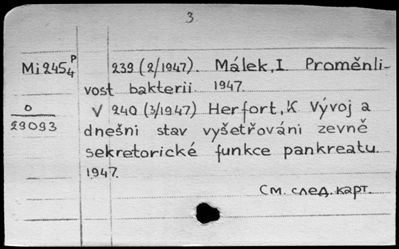 3
Mi2454ᴾ 239 (2/1947). Málek, I Proměnli-
vost bakterii. 1947.
0 V 240 (3/1947) Herfort, K Vývoj a
29093 dnešni stav vyšetřováni zevně
sekretorické funkce pankreatu.
1947.
См. след. карт.